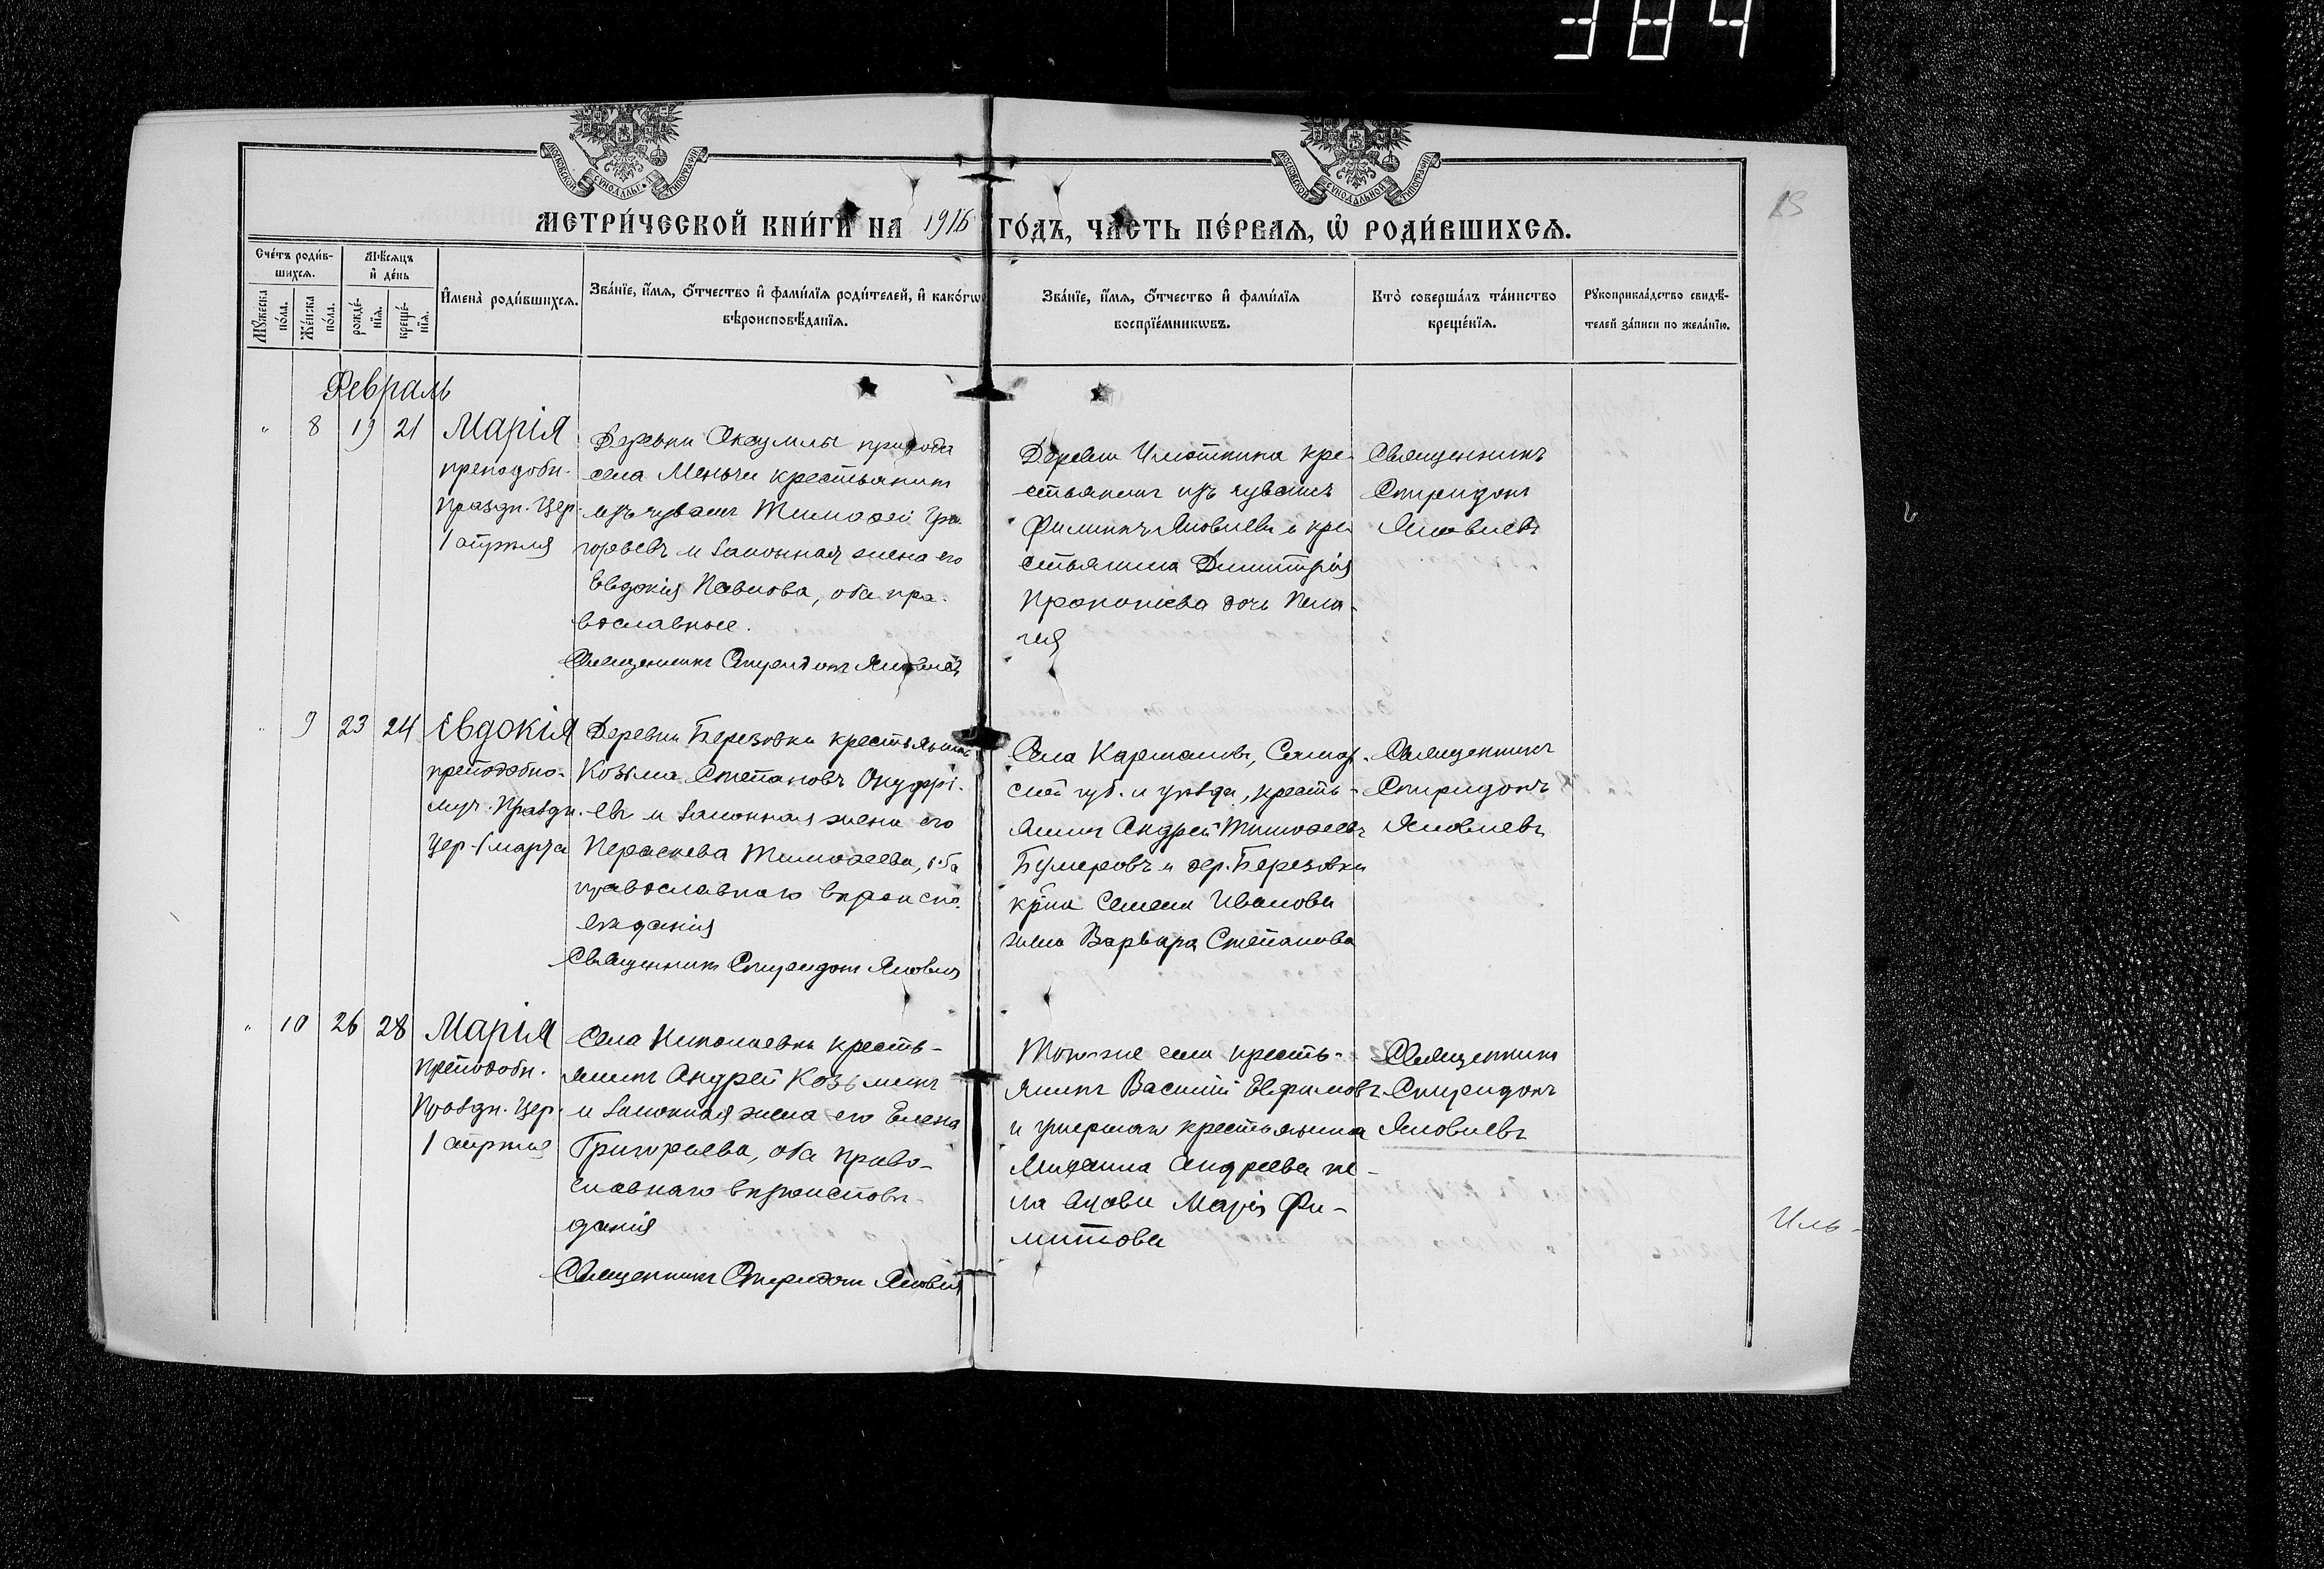 384
МОСКОВСКОЙ СѴНОДАЛЬНОЙ ТИПОГРАФІИ
МОСКОВСКОЙ СѴНОДАЛЬНОЙ ТИПОГРАФІИ
МЕТРИ́ЧЕСКОЙ КНИ́ГИ НА 1916 ГО́ДЪ, ЧА́СТЬ ПЕ́РВАѦ, Ѡ РОДИ́ВШИХСѦ.
Сче́тъ роди́в-
шихсѧ.
Мꙋ́жеска
по́ла.
Же́нска
по́ла.
Мѣ́сѧцъ
и҆ де́нь
рожде́-
нїѧ.
креще́-
нїѧ.
И҆мена̀ роди́вшихсѧ.
Зва́нїе, и҆́мѧ, ѻ҆́тчество и҆ фами́лїѧ роди́телей, и҆ како́гѡ
вѣроисповѣ́данїѧ.
Зва́нїе, и҆́мѧ, ѻ҆́тчество и҆ фами́лїѧ
воспрїе́мникѡвъ.
Кто̀ соверша́лъ та́инство
креще́нїѧ.
Рꙋкоприкла́дство свидѣ́-
телей за́писи по жела́нїю.
Февраль
" 8 19 21 Марія
преподобн.
Праздн. Цер.
1 апрѣля
Деревни прихода
села Меньчи крестьянинъ
изъ чувашъ Тимоѳей Гри-
горьевъ и законная жена его
Евдокія Павлова, оба пра-
вославные.
Священникъ Спиридонъ Яковлевъ
Деревни кре-
стьянинъ изъ чувашъ
Филиппъ Яковлевъ и кре-
стьянина Димитрія
Прокопіева дочь Пела-
гія
Священникъ
Спиридонъ
Яковлевъ
" 9 23 24 Евдокія
преподобно-
муч. Праздн.
Цер. 1 марта
Деревни Березовки крестьянинъ
Козьма Степановъ Онуфрі-
евъ и законная жена его
Параскева Тимоѳеева, оба
православнаго вѣроиспо-
вѣданія
Священникъ Спиридонъ Яковлевъ
Села Самар-
ской губ. и уѣзда, кресть-
янинъ Андрей Тимоѳеевъ
и дер. Березовки
кр̃на Семена Иванова
жена Варвара Степанова
Священникъ
Спиридонъ
Яковлевъ
" 10 26 28 Марія
преподобн.
Праздн. Цер.
1 апрѣля
Села Николаевки кресть-
янинъ Андрей Козьминъ
и законная жена его Елена
Григорьева, оба право-
славнаго вѣроисповѣ-
данія
Священникъ Спиридонъ Яковлевъ
Того же села кресть-
янинъ Василій Евфимовъ
и умершаго крестьянина
Михаила Андреева
вдова Марія Фи-
липпова
Священникъ
Спиридонъ
Яковлевъ
Иль-